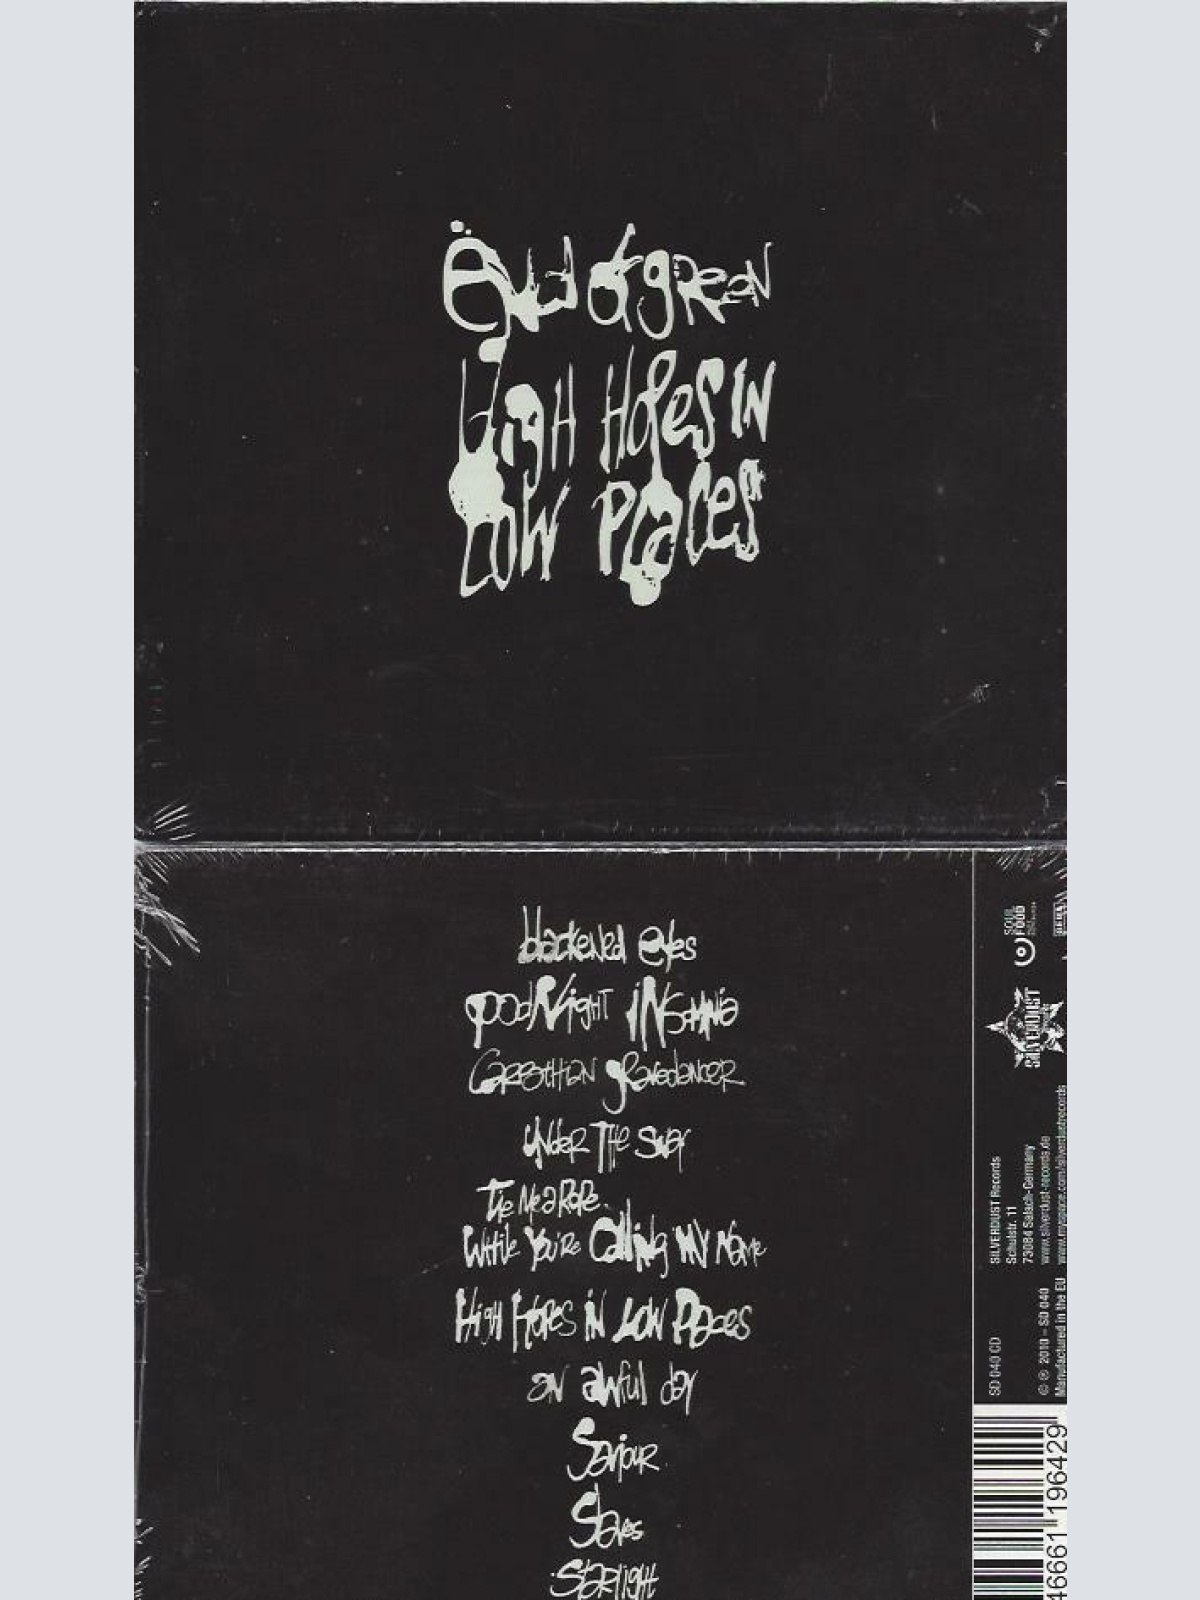 End of green
High Hopes in
Low Places
blackened eyes
goodNight iNsomnia
Carpathian gravedancer
Under The Sway
Tie Me a Rope...
While You're Calling My Name
High Hopes in Low Places
an awful day
Saviour
Slaves
Starlight
SOUL
FOOD
SILVERDUST
SILVERDUST Records
Schulstr. 11
73084 Salach-Germany
www.silverdust-records.de
www.myspace.com/silverdustrecords
SD 040 CD
© ℗ 2010 – SD 040
Manufactured in the EU
46661 196429